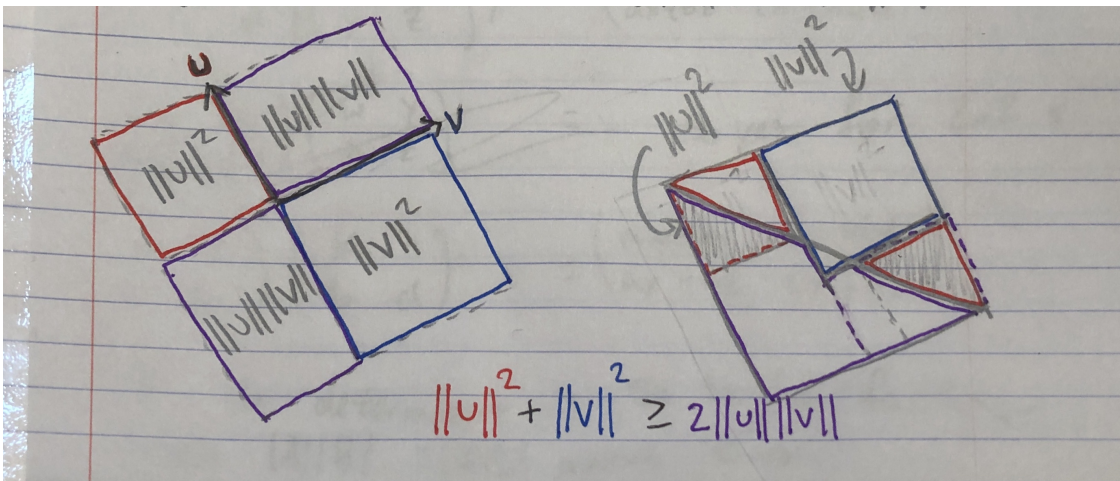 U
||U|| ||V||
V
||U||²
||V||²
||U|| ||V||
||U||²
||V||²
||U||² + ||V||² ≥ 2||U|| ||V||